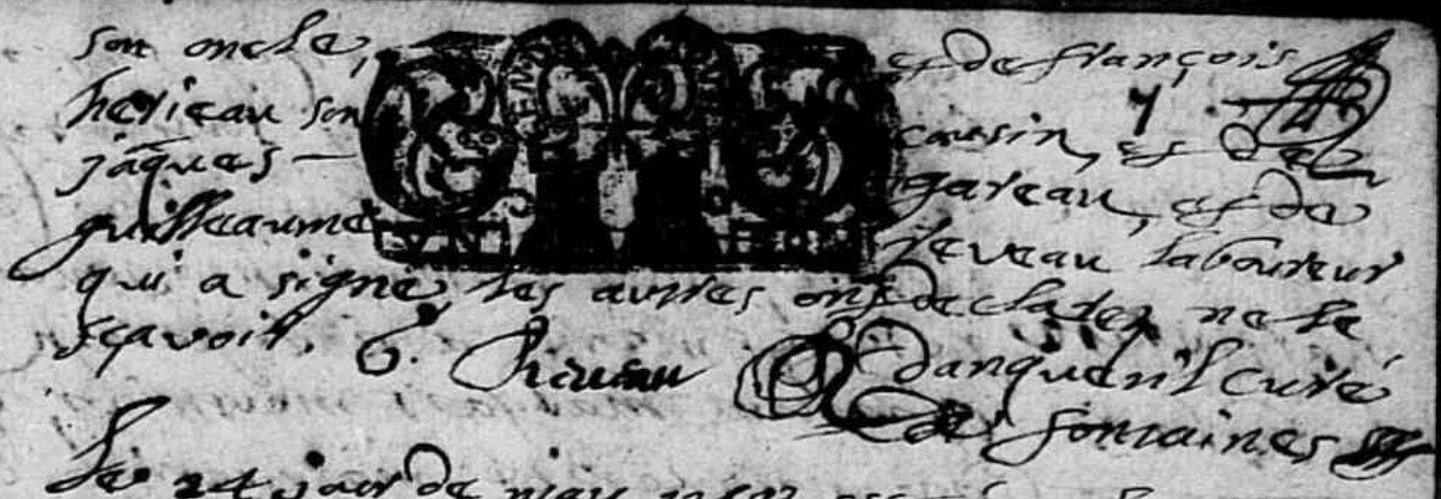 son oncle, et de françois
helieau son cousin, et de
jaques — gareau, et de
guilleaume leveau laboureur
qui a signé, les autres ont declarez ne le
sçavoir. G. danquenil curé
de fontaines
Le 24 jour de may